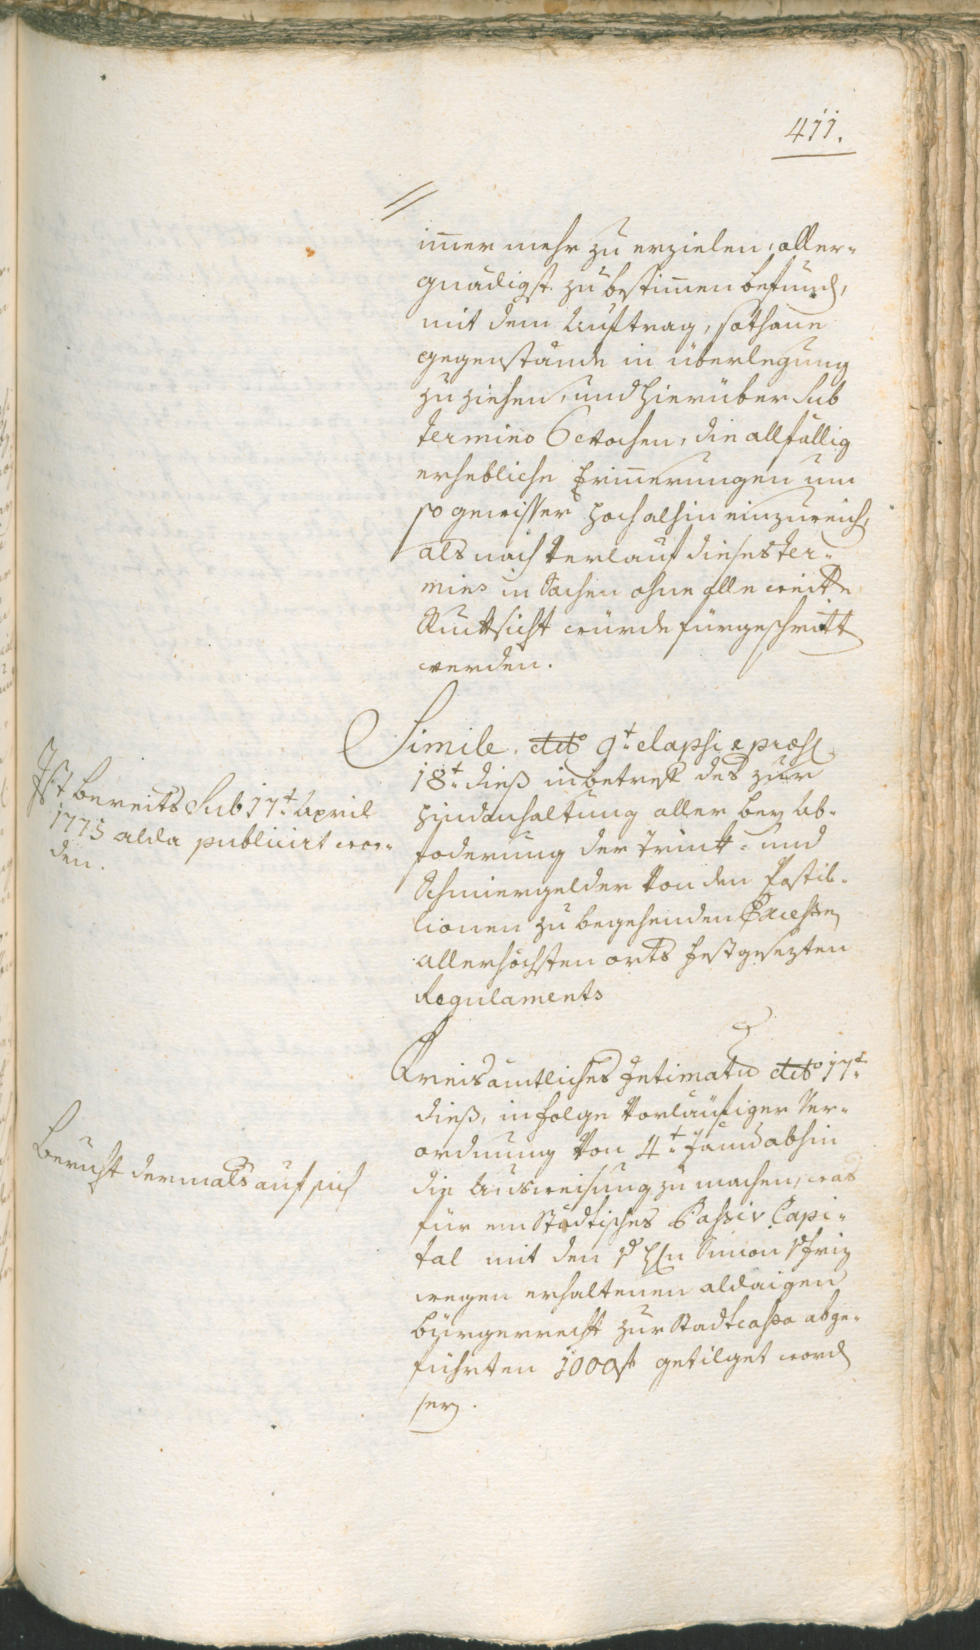 411.
//
immer mehr zu erzielen, aller-
gnädigst zu bestimmen befund,
mit dem Auftrag, sothane
gegenstände in überlegung
zu ziehen, und hierüber sub
termino 6 wochen, die allfällig
erhebliche Erinnerungen um
so gewisser hochalhin einzureich,
als nach verlauf dieses ter-
mins in Sachen ohne alle weitte
Rucksicht würde fürgeschritt
werden.
Simile. ddto 9t. elapsi & praes.
18t. dieß in betref des zur
hindanhaltung aller bey Ab-
foderung der Trink- und
Schmiergelder von den Postil-
lionen zu begehenden Excessen
allerhöchsten orts festgesezten
Regulaments
Ist bereits sub 17t. April
1775 alda publicirt wor-
den.
Kreisamtliches Intimatum ddto 17t.
dieß, in folge vorläufiger Ver-
ordnung von 4t. Jäner abhin
die Ausweisung zu machen, was
für ein Städtisches Passiv Capi-
tal mit den Simon
wegen erhaltenen aldaigen
bürgerrecht zur Stadtcassa abge-
führten 1000 f getilget word
sey.
Bericht dermals auf sich